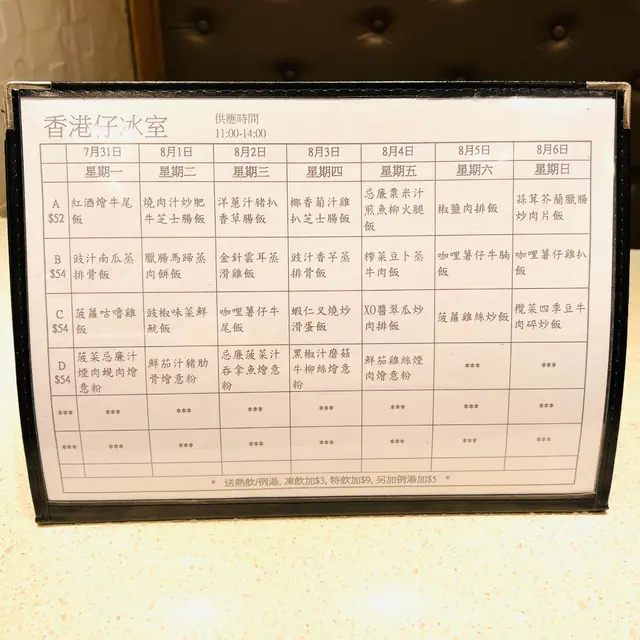 香港仔冰室
供應時間
11:00-14:00
7月31日 8月1日 8月2日 8月3日 8月4日 8月5日 8月6日
星期一 星期二 星期三 星期四 星期五 星期六 星期日
A
$52
紅酒燴牛尾
飯
燒肉汁炒肥
牛芝士腸飯
洋蔥汁豬扒
香草腸飯
椰香葡汁雞
扒芝士腸飯
忌廉粟米汁
煎魚柳火腿
飯
椒鹽肉排飯
蒜茸芥蘭臘腸
炒肉片飯
B
$54
豉汁南瓜蒸
排骨飯
臘腸馬蹄蒸
肉餅飯
金針雲耳蒸
滑雞飯
豉汁香芋蒸
排骨飯
榨菜豆卜蒸
牛肉飯
咖哩薯仔牛腩
飯
咖哩薯仔雞扒
飯
C
$54
菠蘿咕嚕雞
飯
豉椒味菜鮮
魷飯
咖哩薯仔牛
尾飯
蝦仁叉燒炒
滑蛋飯
XO醬翠瓜炒
肉排飯
菠蘿雞絲炒飯
欖菜四季豆牛
肉碎炒飯
D
$54
菠菜忌廉汁
煙肉蜆肉燴
意粉
鮮茄汁豬肋
骨燴意粉
忌廉菠菜汁
吞拿魚燴意
粉
黑椒汁磨菇
牛柳絲燴意
粉
鮮茄雞絲煙
肉燴意粉
***
***
*** *** *** *** *** *** *** ***
*** *** *** *** *** *** *** ***
* 送熱飲/例湯, 凍飲加$3, 特飲加$9, 另加例湯加$5 *